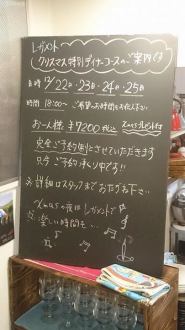 レガメント
クリスマス特別ディナーコースのご案内です
日時 12/22日・23日・24日・25日
時間 18:00～ ご希望のお時間をお伝え下さい
お一人様 ¥7200 税込 Xmasプレゼント付
完全ご予約制とさせていただきます
只今ご予約承り中です!!
※詳細はスタッフまでおたずね下さい
Xmasの夜はレガメントで
楽しい時間を…